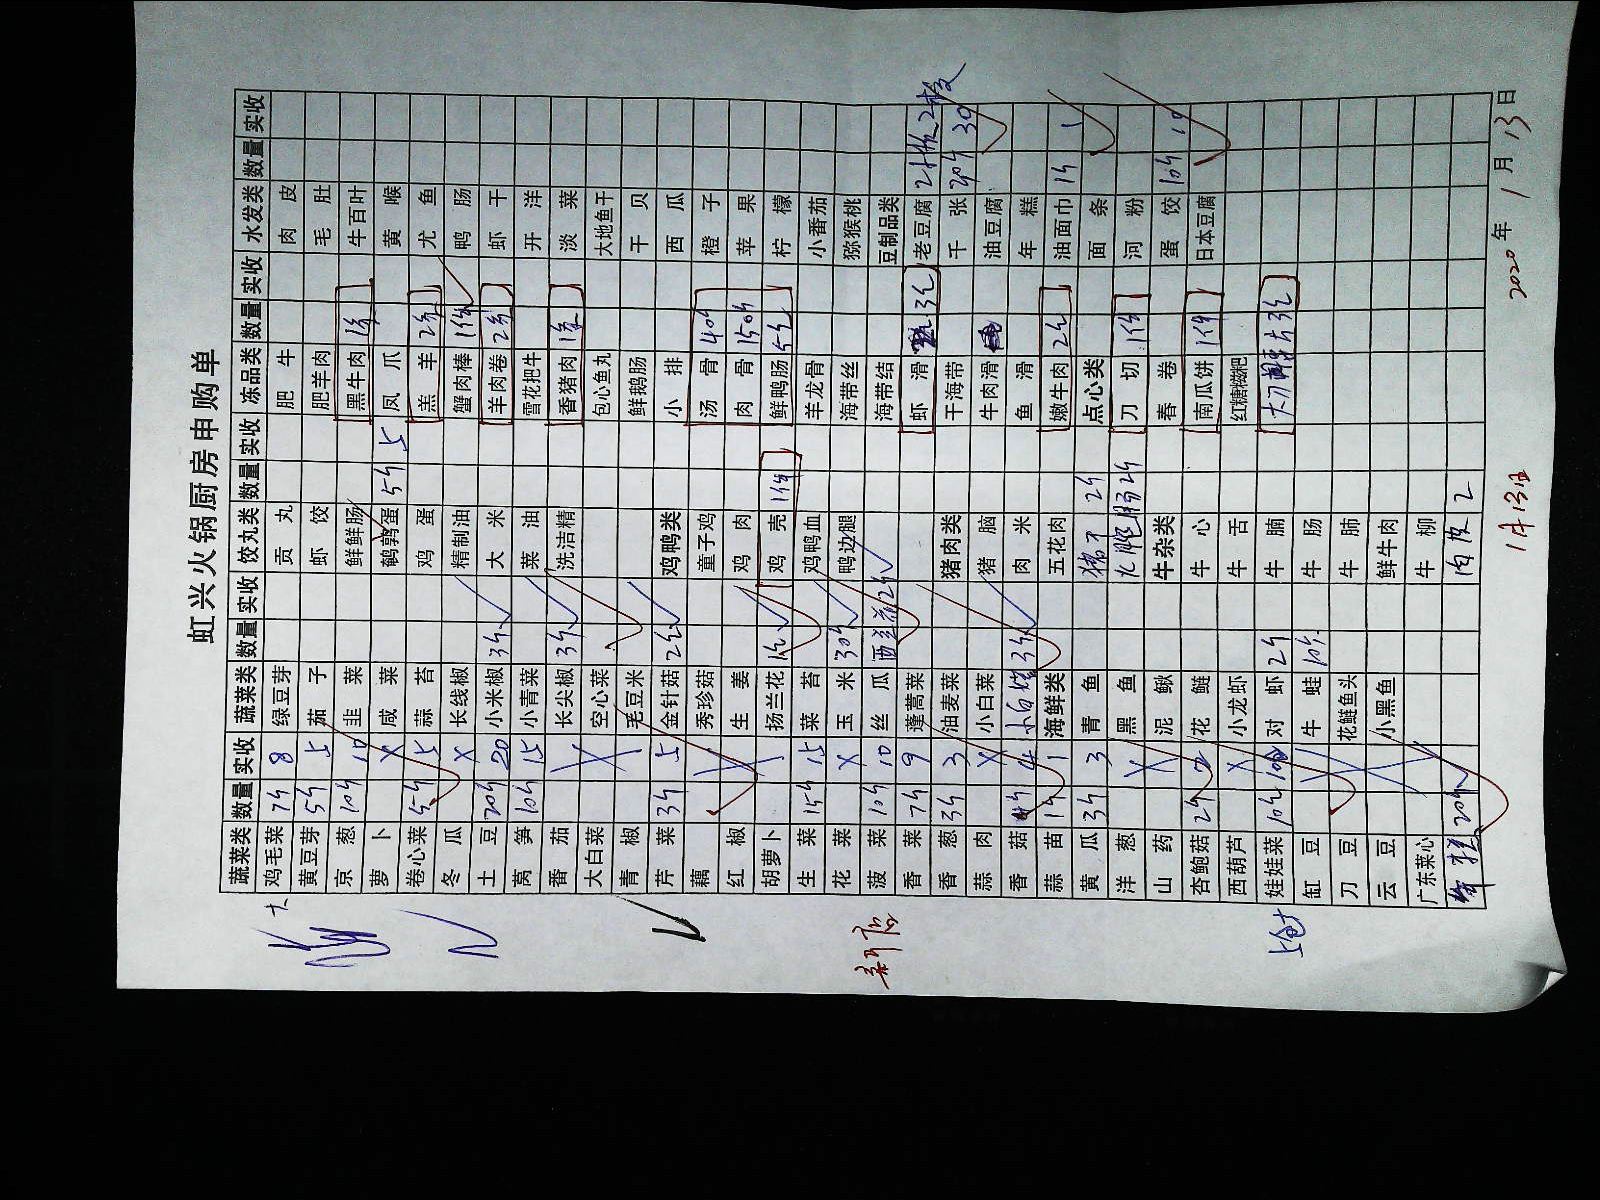 虹兴火锅厨房申购单
蔬菜类 数量 实收 蔬菜类 数量 实收 饺丸类 数量 实收 冻品类 数量 实收 水发类 数量 实收
鸡毛菜 7斤 8 绿豆芽 贡丸 肥牛 肉皮
黄豆芽 5斤 5 茄子 虾饺 肥羊肉 毛肚
京葱 10斤 10 韭菜 鲜鲜肠 黑牛肉 1条 牛百叶
萝卜 X 咸菜 鹌鹑蛋 5斤 5 凤爪 黄喉
卷心菜 5斤 5 蒜苔 鸡蛋 羔羊 2条 尤鱼
冬瓜 X 长线椒 精制油 蟹肉棒 1件 鸭肠
土豆 20斤 20 小米椒 3斤 大米 羊肉卷 2条 虾干
莴笋 10斤 15 小青菜 菜油 雪花把牛 开洋
番茄 长尖椒 3斤 洗洁精 香猪肉 1条 淡菜
大白菜 空心菜 包心鱼丸 大地鱼干
青椒 毛豆米 鲜鹅肠 干贝
芹菜 3斤 5 金针菇 2包 鸡鸭类 小排 西瓜
藕 秀珍菇 童子鸡 汤骨 40斤 橙子
红椒 生姜 鸡肉 肉骨 150斤 苹果
胡萝卜 扬兰花 1包 鸡壳 1件 鲜鸭肠 5包 柠檬
生菜 15斤 15 菜苔 鸡鸭血 羊龙骨 小番茄
花菜 X 玉米 30斤 鸭边腿 海带丝 猕猴桃
菠菜 10斤 10 丝瓜 西兰花2斤 海带结 豆制品类
香菜 7斤 9 蓬蒿菜 虾滑 3包 老豆腐 2板 2板
香葱 3斤 3 油麦菜 猪肉类 干海带 千张 30斤 30
蒜肉 X 小白菜 猪脑 牛肉滑 油豆腐
香菇 4斤 4 小白菇 3斤 肉米 鱼滑 年糕
蒜苗 1斤 1 海鲜类 五花肉 嫩牛肉 2包 油面巾 1斤 1
黄瓜 3斤 3 青鱼 猪肝 2斤 点心类 面条
洋葱 黑鱼 大肥肠2斤 刀切 1件 河粉
山药 X 泥鳅 牛杂类 春卷 蛋饺 10斤 10
杏鲍菇 2斤 2 花鲢 牛心 南瓜饼 1件 日本豆腐
西葫芦 X 小龙虾 牛舌 红糖糍粑
娃娃菜 10斤 10 对虾 2斤 牛腩 3包
缸豆 牛蛙 10斤 牛肠
刀豆 花鲢鱼头 牛肺
云豆 小黑鱼 鲜牛肉
广东菜心 牛柳
20斤 肉皮 2
新店
1月13日
2020年1月13日